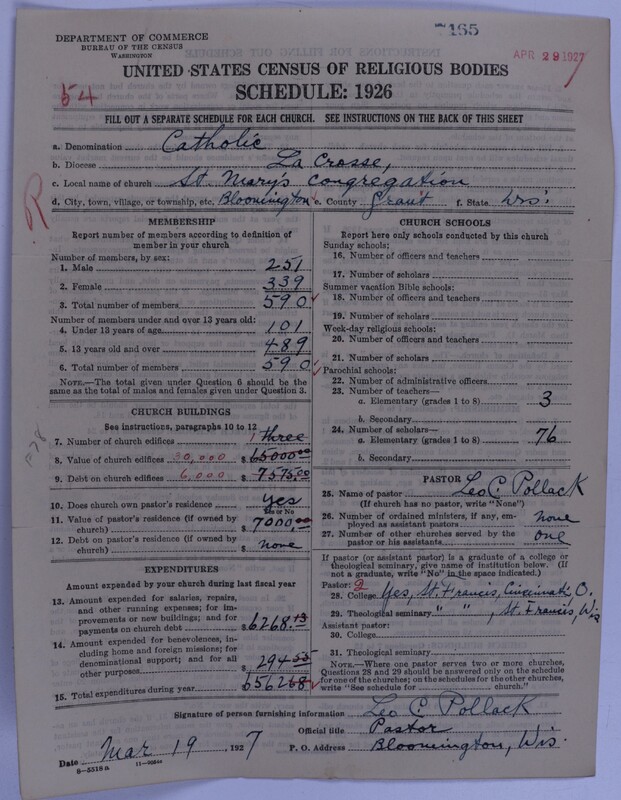 7165
DEPARTMENT OF COMMERCE
BUREAU OF THE CENSUS
WASHINGTON
APR 29 1927
UNITED STATES CENSUS OF RELIGIOUS BODIES
SCHEDULE: 1926
54
FILL OUT A SEPARATE SCHEDULE FOR EACH CHURCH. SEE INSTRUCTIONS ON THE BACK OF THIS SHEET
a. Denomination Catholic
b. Diocese La Crosse,
c. Local name of church St. Mary's Congregation
d. City, town, village, or township, etc. Bloomington e. County Grant f. State Wis.
R
MEMBERSHIP
Report number of members according to definition of
member in your church
Number of members, by sex:
1. Male 251
2. Female 339
3. Total number of members 590
Number of members under and over 13 years old:
4. Under 13 years of age 101
5. 13 years old and over 489
6. Total number of members 590
NOTE.—The total given under Question 6 should be the
same as the total of males and females given under Question 3.
CHURCH BUILDINGS
See instructions, paragraphs 10 to 12
7. Number of church edifices 1 three
8. Value of church edifices 30,000 $ 65000.00
9. Debt on church edifices 6,000 $ 7575.00
10. Does church own pastor's residence yes
Yes or No
11. Value of pastor's residence (if owned by
church) $ 7000.00
12. Debt on pastor's residence (if owned by
church) $ none
EXPENDITURES
Amount expended by your church during last fiscal year
13. Amount expended for salaries, repairs,
and other running expenses; for im-
provements or new buildings; and for
payments on church debt $ 6268.13
14. Amount expended for benevolences, in-
cluding home and foreign missions; for
denominational support; and for all
other purposes $ 294.55
15. Total expenditures during year $ 6562.68
CHURCH SCHOOLS
Report here only schools conducted by this church
Sunday schools:
16. Number of officers and teachers
17. Number of scholars
Summer vacation Bible schools:
18. Number of officers and teachers
19. Number of scholars
Week-day religious schools:
20. Number of officers and teachers
21. Number of scholars
Parochial schools:
22. Number of administrative officers
23. Number of teachers—
a. Elementary (grades 1 to 8) 3
b. Secondary
24. Number of scholars—
a. Elementary (grades 1 to 8) 76
b. Secondary
PASTOR
25. Name of pastor Leo C. Pollack
(If church has no pastor, write "None")
26. Number of ordained ministers, if any, em-
ployed as assistant pastors none
27. Number of other churches served by the
pastor or his assistants one
If pastor (or assistant pastor) is a graduate of a college or
theological seminary, give name of institution below. (If
not a graduate, write "No" in the space indicated.)
Pastor: 2
28. College Yes, St. Francis, Cincinnati O.
29. Theological seminary " ", St. Francis, Wis
Assistant pastor:
30. College
31. Theological seminary
NOTE.—Where one pastor serves two or more churches,
Questions 28 and 29 should be answered only on the schedule
for one of the churches; on the schedules for the other churches,
write "See schedule for church."
Signature of person furnishing information Leo C Pollack
Official title Pastor
Date Mar 19, 1927 P. O. Address Bloomington, Wis.
8—5318 a